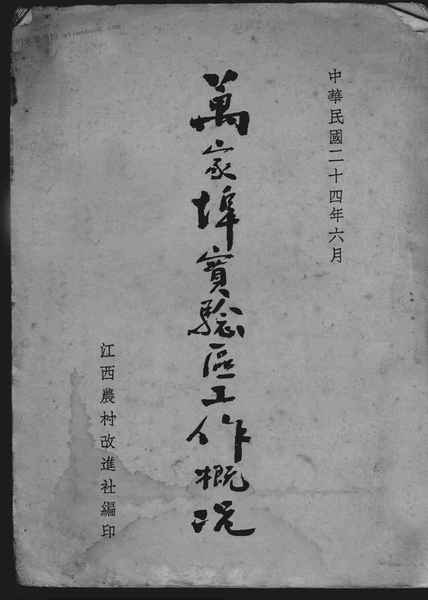 中華民國二十四年六月
萬家埠實驗區工作概况
江西農村改進社編印